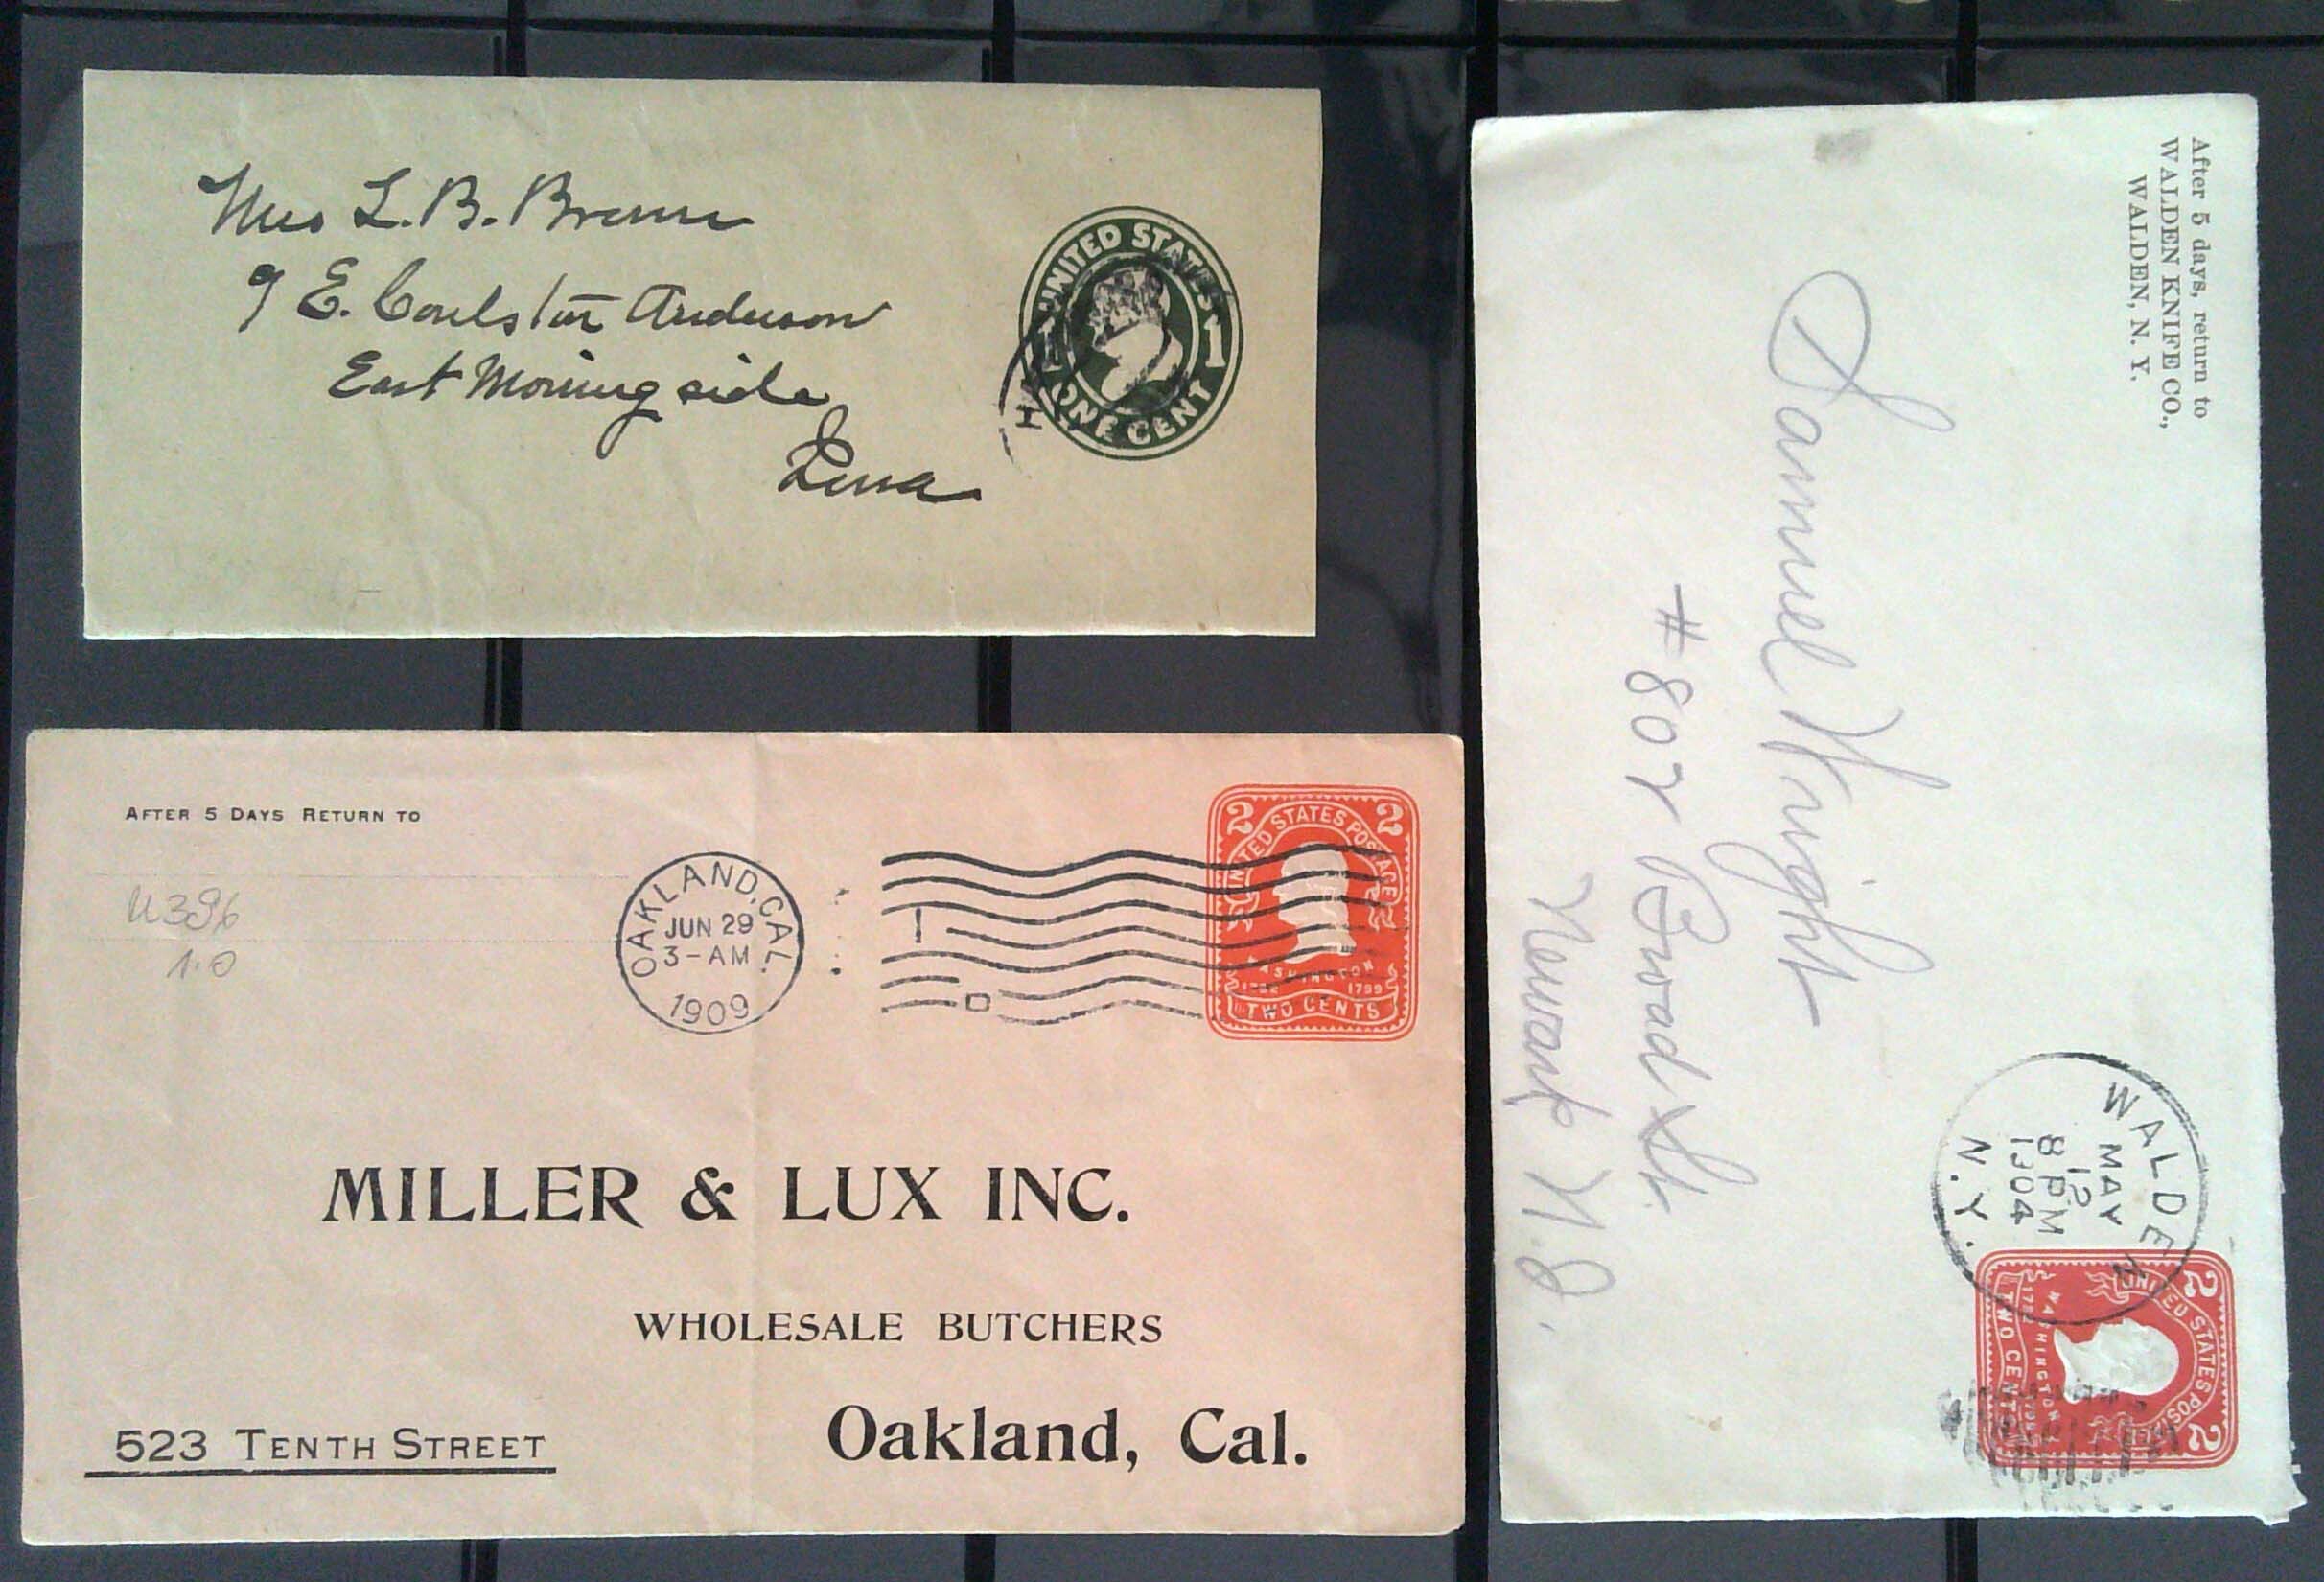 Mrs L. B. Brown
9 E. Coulston Anderson
East Morningside
UNITED STATES
1
ONE CENT
AFTER 5 DAYS RETURN TO
U396
1.0
OAKLAND, CAL.
JUN 29
3-AM
1909
2 2
UNITED STATES POSTAGE
WASHINGTON
1732 1799
TWO CENTS
MILLER & LUX INC.
WHOLESALE BUTCHERS
523 TENTH STREET
Oakland, Cal.
After 5 days, return to
WALDEN KNIFE CO.,
WALDEN, N. Y.
Samuel Wright
# 807 Broad St.
Newark N.J.
WALDEN
MAY
12
8 PM
1904
N.Y.
2 2
UNITED STATES POSTAGE
WASHINGTON
TWO CENTS